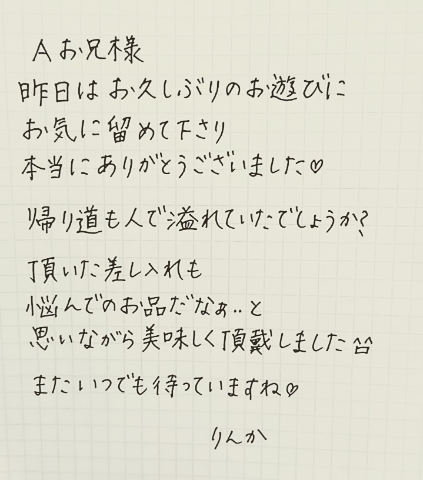 Aお兄様
昨日はお久しぶりのお遊びに
お気に留めて下さり
本当にありがとうございました♡
帰り道も人で溢れていたでしょうか?
頂いた差し入れも
悩んでのお品だなぁ..と
思いながら美味しく頂戴しました^^
またいつでも待っていますね♡
りんか